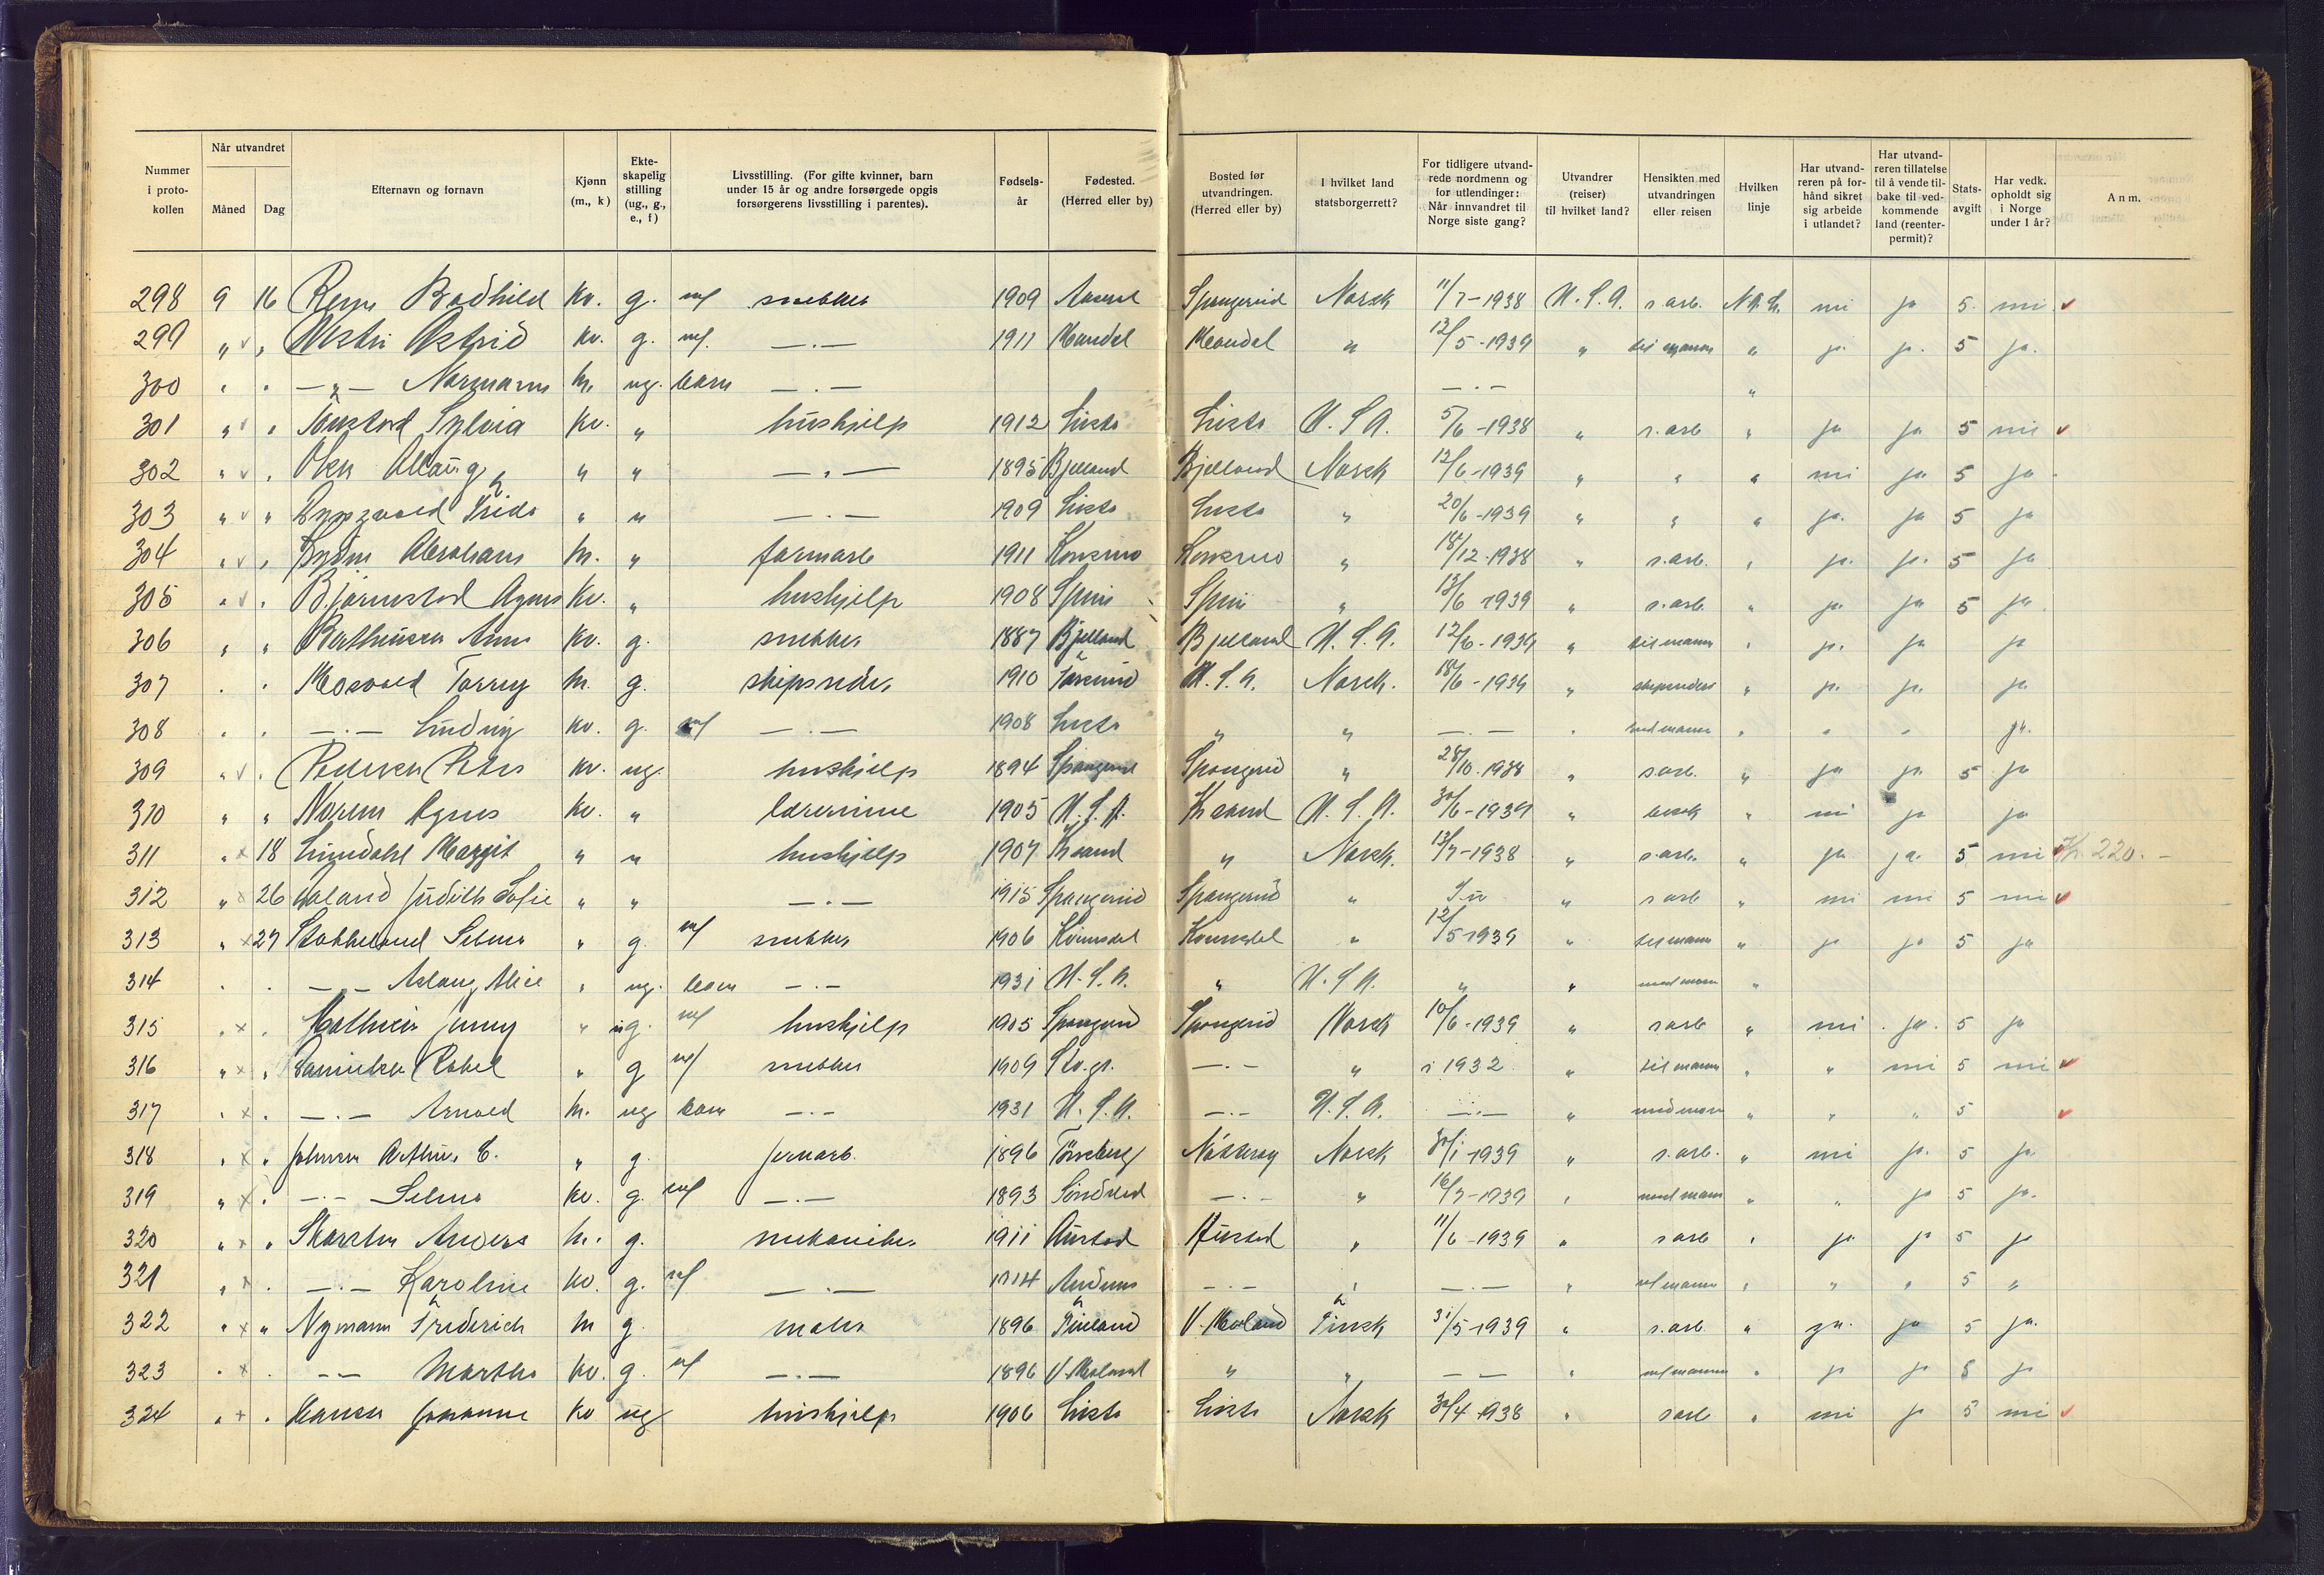 Nummer i proto- kollen | Når utvandret | Måned | Dag | Efternavn og fornavn | Kjønn (m., k) | Ekte- skapelig stilling (ug., g., e., f) | Livsstilling. (For gifte kvinner, barn under 15 år og andre forsørgede opgis forsørgerens livsstilling i parentes). | Fødsels- år | Fødested. (Herred eller by) | Bosted før utvandringen. (Herred eller by) | I hvilket land statsborgerrett? | For tidligere utvand- rede nordmenn og for utlendinger: Når innvandret til Norge siste gang? | Utvandrer (reiser) til hvilket land? | Hensikten med utvandringen eller reisen | Hvilken linje | Har utvand- reren på for- hånd sikret sig arbeide i utlandet? | Har utvand- reren tillatelse til å vende til- bake til ved- kommende land (reenter- permit)? | Stats- avgift | Har vedk. opholdt sig i Norge under 1 år? | Anm.
298 9 16 Bodhild Kv. g. snekker 1909 Spangereid Norsk 11/7-1938 U.S.A. s. arb. N.A.L. nei ja 5. nei
299 " " Astrid Kv. g. —.— 1911 Mandal Mandal " 12/5-1939 " til mann " ja. ja. 5 ja.
300 " " —"— Normann M. ug. barn —.— —.— "
301 " " Sylvia Kv. " hushjelp 1912 Lista Lista U.S.A. 5/6-1938 " s. arb " ja ja 5 nei
302 " " " " —"— 1895 Bjelland Bjelland Norsk 12/6-1939 " " " nei ja 5 ja
303 " " Frida " " —.— 1909 Lista Lista " 20/6-1939 " " " ja. ja 5 ja
304 " " Abraham M. " farmarb 1911 Konsmo Konsmo " 18/12-1938 " s. arb. " ja. ja. 5 ja
305 " " Bjørnestad Agnes Kv. " hushjelp 1908 Spind Spind " 13/6 1939 " s. arb. " ja ja 5 ja
306 " " Berthinsen Anna Kv. g. snekker 1887 Bjelland Bjelland U.S.A. 12/6-1939 " til mann " ja. ja ja
307 " " Mosvold Torrey M. g. skipsreder 1910 Farsund U.S.A. Norsk. 18/6-1939 " " ja. ja. ja
308 " " —.— Kv. g. —.— 1908 Lista " " —.— " med mann " " " ja.
309 " " Pedersen Petra Kv. ug. hushjelp 1894 Spangereid Spangereid " 28/10-1938 " s. arb. " ja ja 5 ja
310 " " Norem Agnes Kv. " lærerinne 1905 U.S.A. Kr.sand U.S.A. 30/6-1939 " besøk " nei ja ja
311 " 18 Lunddahl Margit " " hushjelp 1907 Kr.sand " Norsk. 13/7-1938 " s. arb. " ja ja. 5 nei Kr. 220.-
312 " 26 Aaland Judith Sofie " " —.— 1915 Spangereid Spangereid " " s arb " nei nei 5 nei
313 " 27 Stokkeland Selma " g. snekker 1906 Kvinesdal Kvinesdal " 12/5 1939 " til mann " ja ja 5 ja
314 " " —"— Aslaug Alice " ug. barn —.— 1931 U.S.A. " U.S.A. " " med mann "
315 " " Jenny " ug. hushjelp 1905 Spangereid Spangereid Norsk 10/6-1939 " s arb " nei ja. 5 ja
316 " " Danielsen Rakel " g snekker 1909 —.— " i 1932 " til mann " " nei 5 nei
317 " " —.— Arnold M. ug barn —.— 1931 U.S.A. —.— U.S.A. —.— " med mann " " " 5
318 " " Johnsen Arthur C. " g. jernarb. 1896 Tønsberg Nøtterøy Norsk 30/1-1939 " s. arb. " nei ja. 5 ja
319 " " —.— Selma Kv. g. —.— 1893 —.— " 16/7-1939 " med mann " " ja 5 ja.
320 " " Anders M. g. mekaniker 1911 Austad Austad " 11/6-1939 " s arb " ja ja 5 ja
321 " " —.— Karoline Kv. g. —.— 1914 —.— " —.— " m/ mann " " " 5 "
322 " " Nymann Frederick M g. maler 1896 Finland V. Moland Finsk 31/5-1939 " s. arb. " ja. ja 5 ja.
323 " " —.— Martha Kv. g. —.— 1896 V. Moland " " —.— " m/ mann " ja ja 5 ja
324 " " Hansen Johanne Kv ug hushjelp 1906 Lista Lista Norsk 30/4-1938 " s arb " nei ja 5 nei